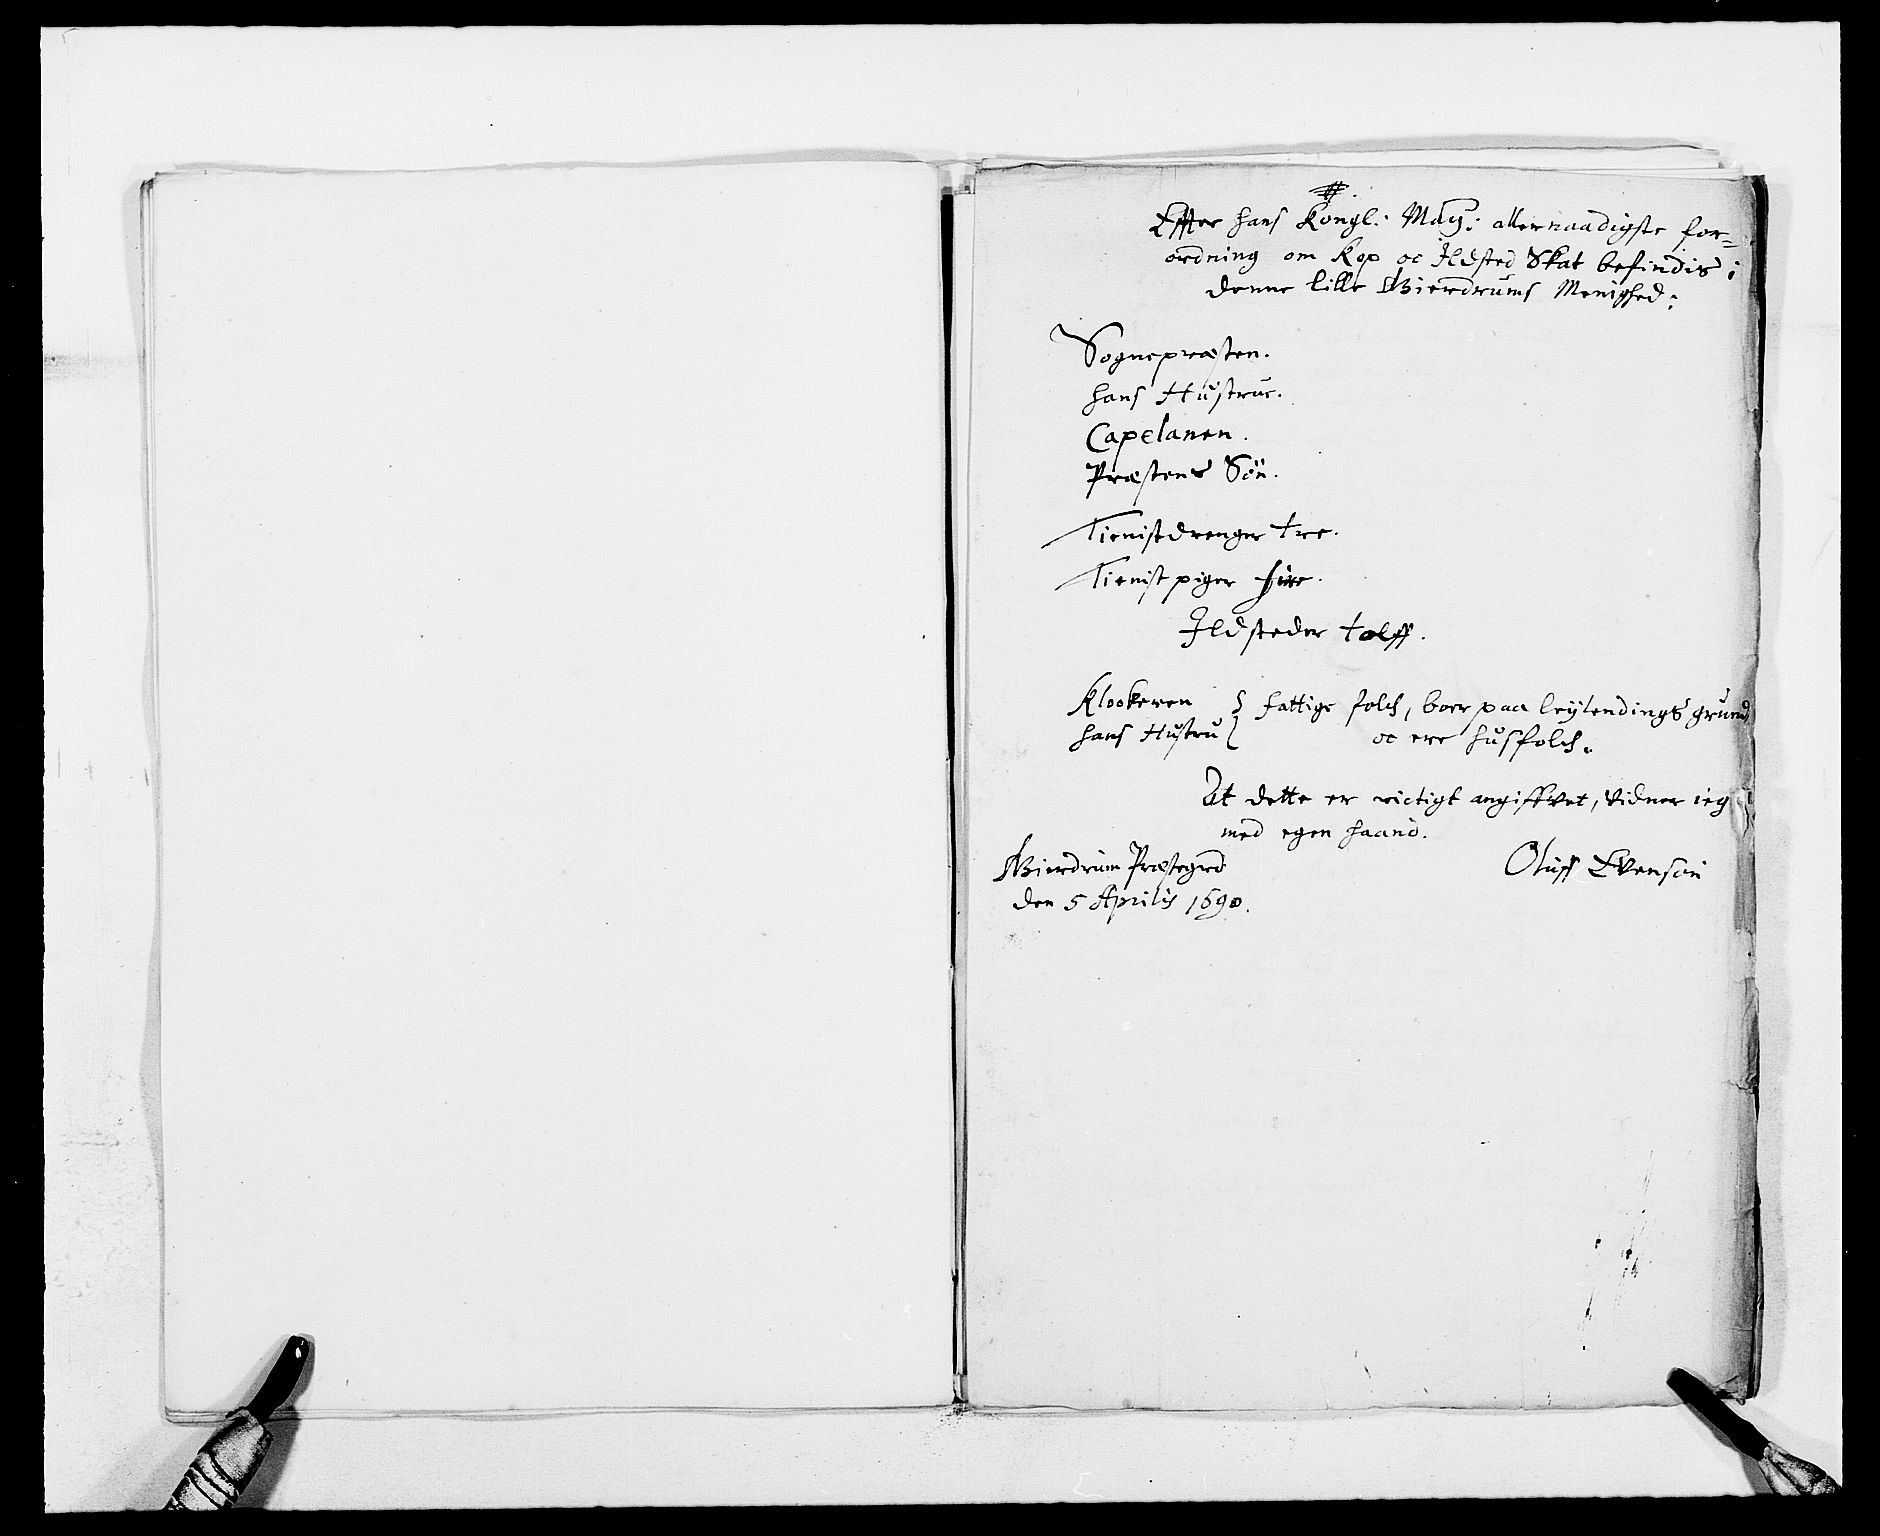 Effter hans Kongl: May: allernaadigste for-
ordning om Kop oc Ildsted Skat befindis i
denne lille Gierdrums Menighed:
Sognepræsten.
hans Hustrue.
Capelanen.
Præstens Sön.
Tienistdrenger tre.
Tienist piger fire.
Ildsteder tolff.
Klockeren } fattige folch, boer paa leylendings grund,
hans Hustru } oc ere husfolch.
At dette er rictigt angiffvet, vidner ieg
med egen haand.
Gierdrum Præstegrd
den 5 Aprilis 1690.
Oluff Evensøn